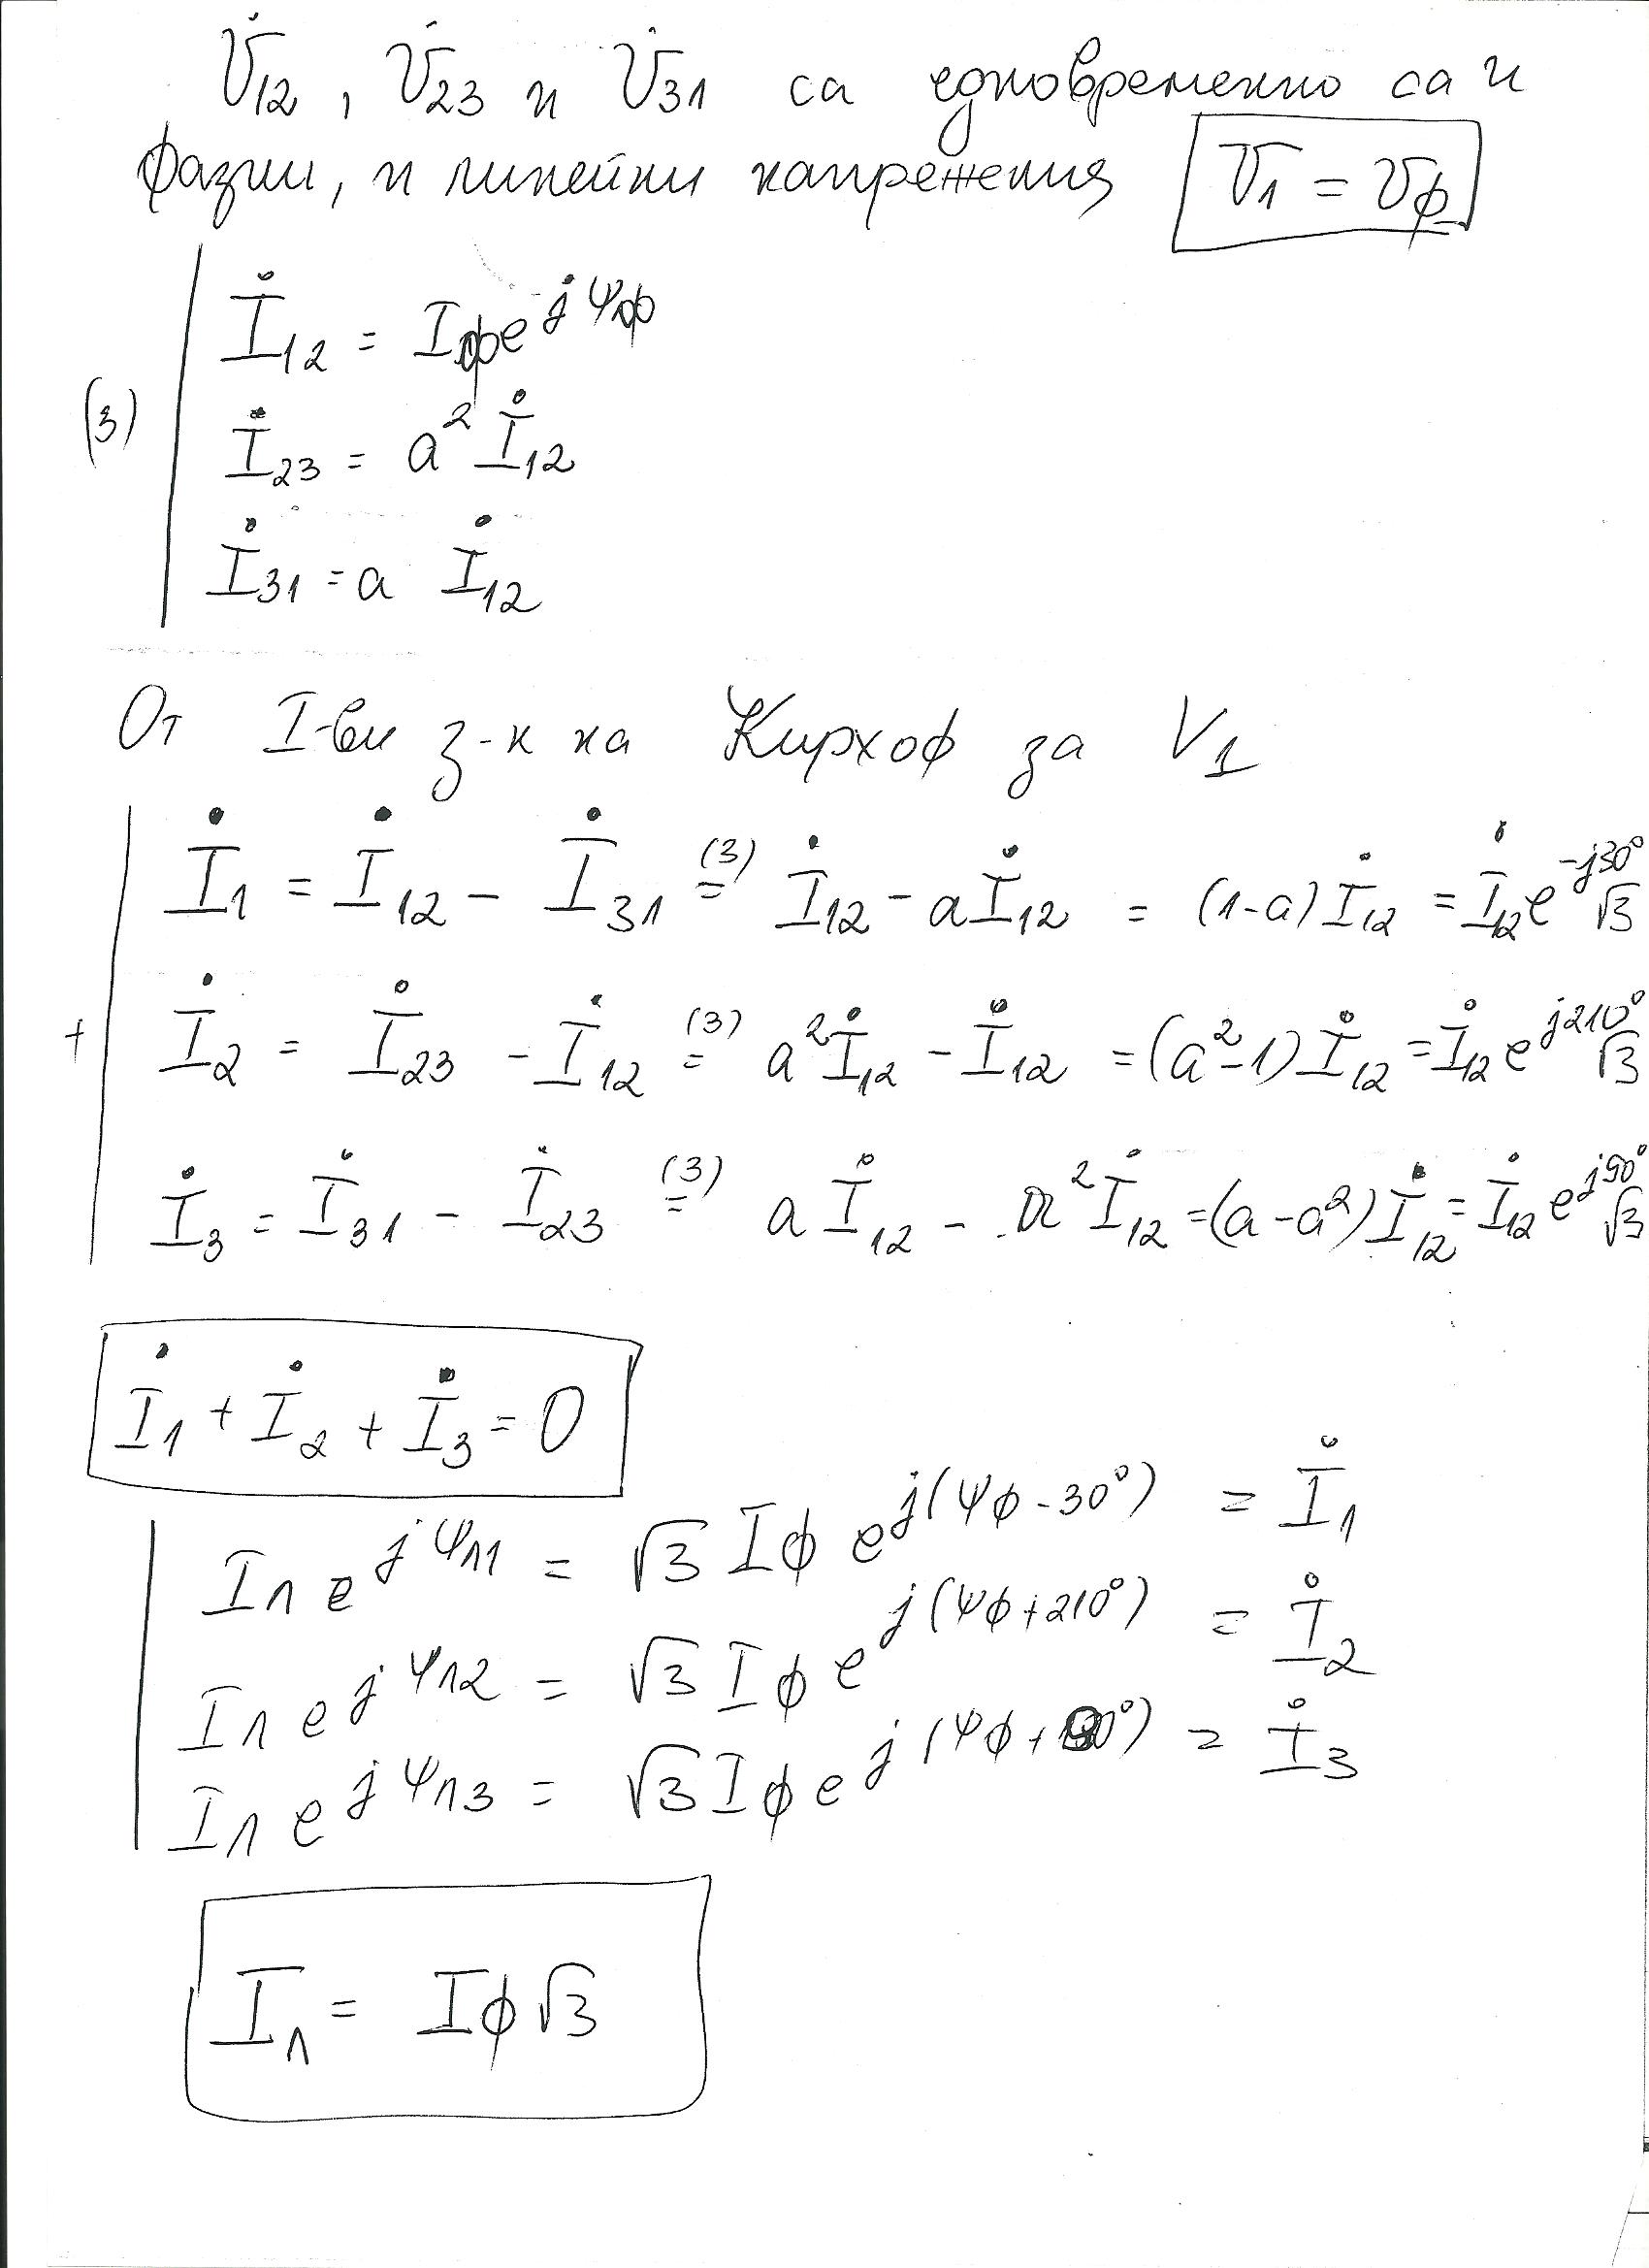 U̇12, U̇23 и U̇31 са едновременно са и
фазни, и линейни напрежения U1 = Uф
(3)
İ12 = Iф e^jψф
İ23 = a² İ12
İ31 = a İ12
От I-ви з-к на Кирхоф за V1
İ1 = İ12 - İ31 (3)= İ12 - aİ12 = (1-a)İ12 = İ12 e^-j30° √3
+ İ2 = İ23 - İ12 (3)= a²İ12 - İ12 = (a²-1)İ12 = İ12 e^j210° √3
İ3 = İ31 - İ23 (3)= aİ12 - a²İ12 = (a-a²)İ12 = İ12 e^j90° √3
İ1 + İ2 + İ3 = 0
Iл e^jψл1 = √3 Iф e^j(ψф-30°) = İ1
Iл e^jψл2 = √3 Iф e^j(ψф+210°) = İ2
Iл e^jψл3 = √3 Iф e^j(ψф+90°) = İ3
Iл = Iф√3